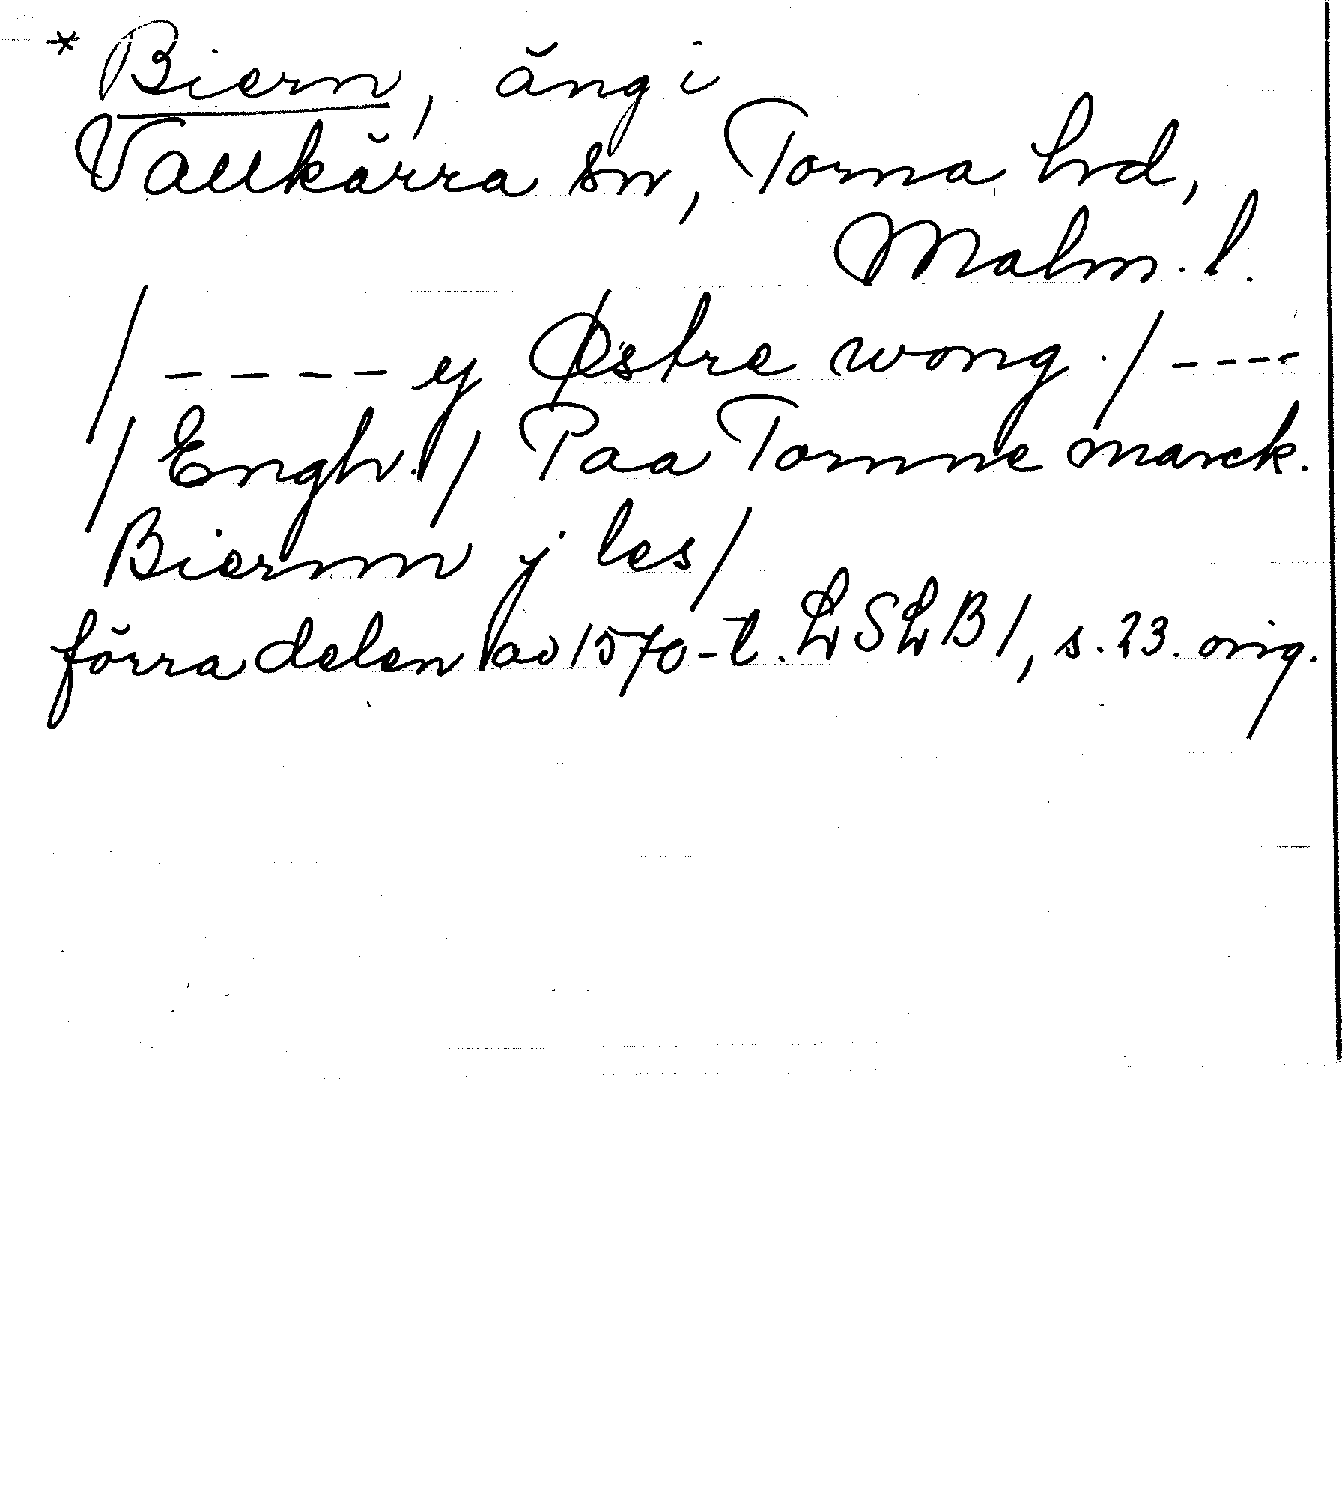 * Biern, äng i
Vallkärra sn, Torna hrd,
Malm. l.
/ ---- y Østre wong. / ----
/ Engh. / Paa Tornne marck.
Biernn y les /
förra delen av 1570-t. LSLB 1, s. 23. orig.